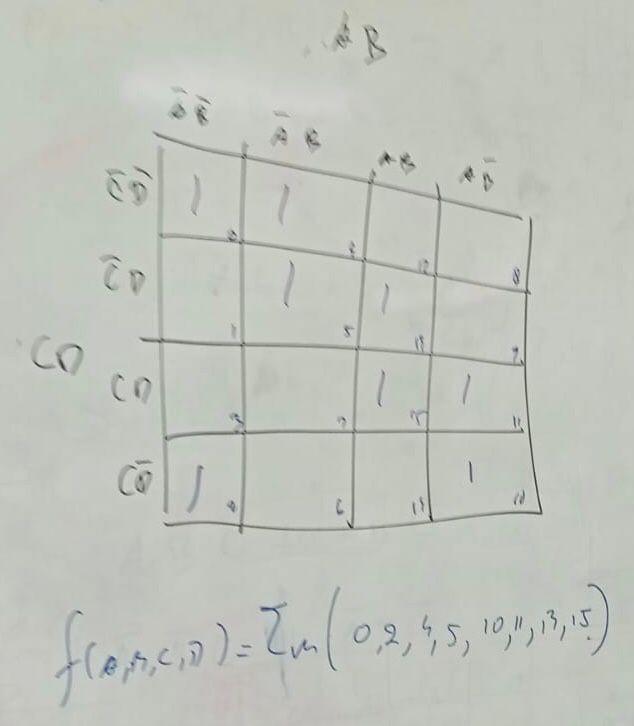 AB
A̅B̅ A̅B AB AB̅
C̅D̅ 1 1
0 4 12 8
C̅D 1 1
1 5 13 9
CD
CD 1 1
3 7 15 11
CD̅ 1 1
6 14 10
f(A,B,C,D) = Σm(0,2,4,5,10,11,13,15)